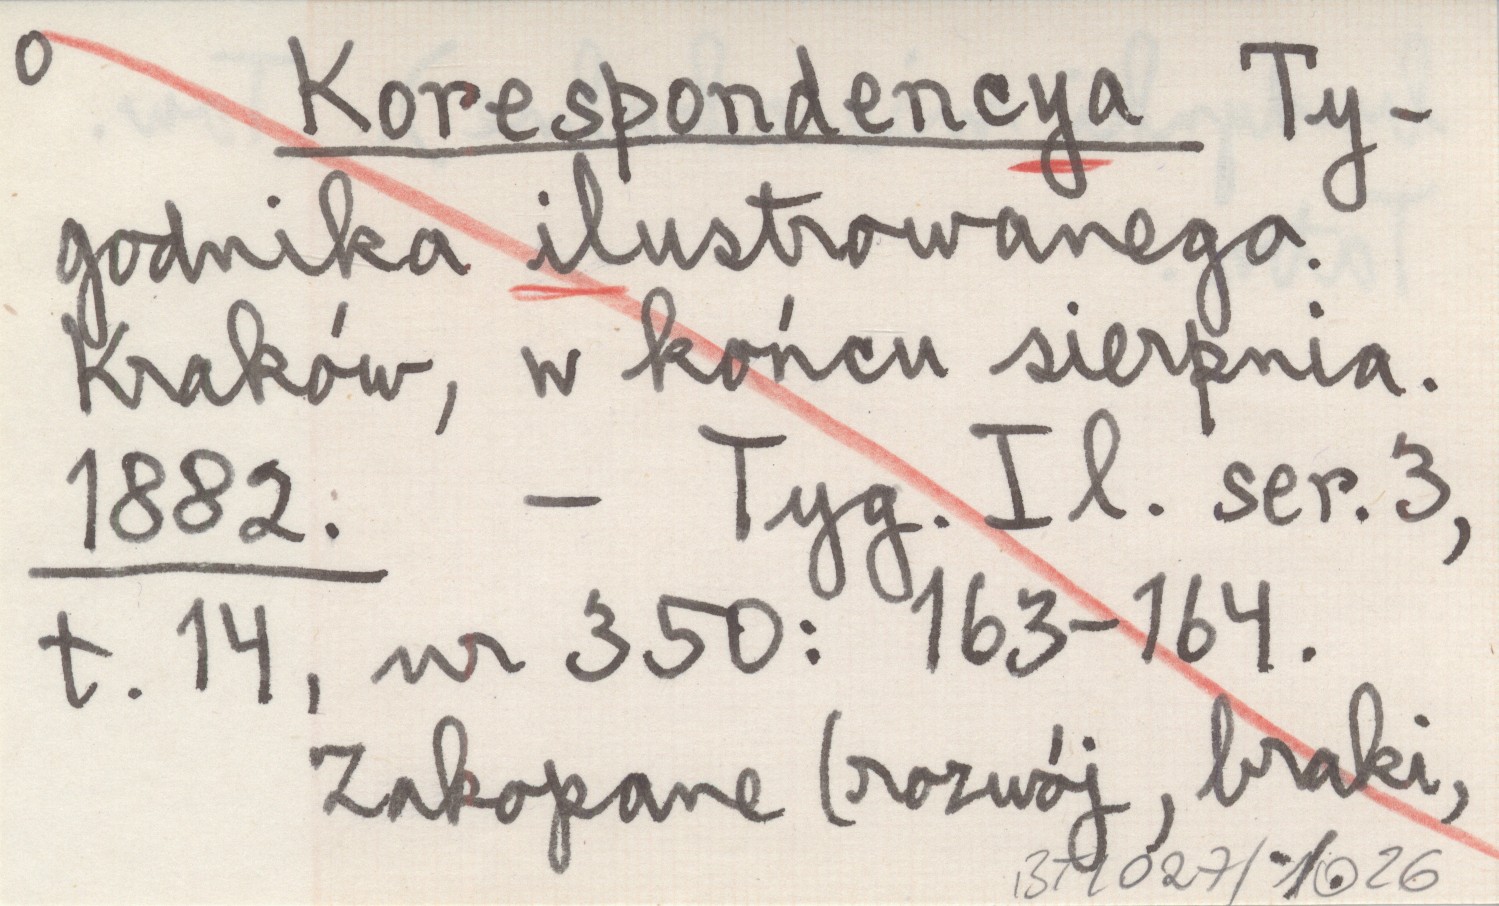 0
Korespondencya Ty-
godnika ilustrowanego.
Kraków, w końcu sierpnia.
1882. - Tyg. Il. ser. 3,
t. 14, nr 350: 163-164.
Zakopane (rozwój, braki,